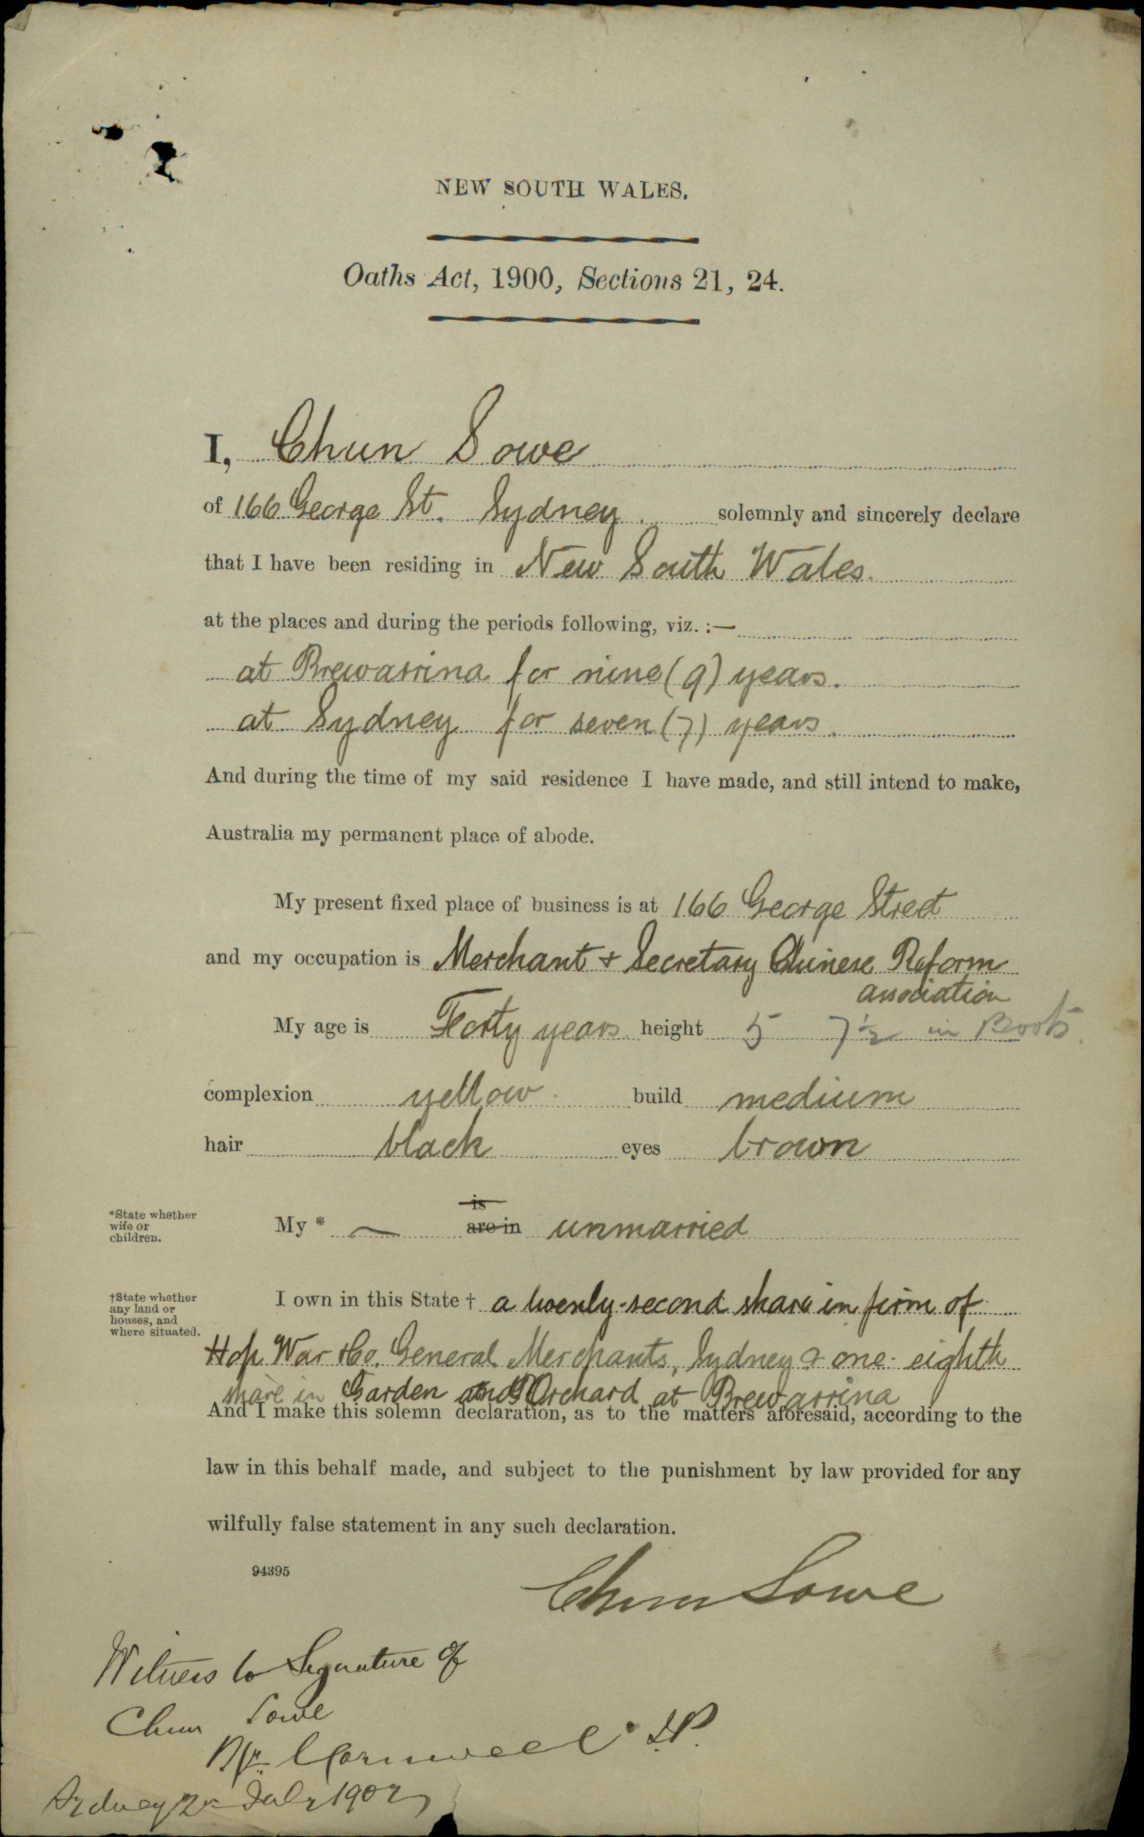 NEW SOUTH WALES.
Oaths Act, 1900, Sections 21, 24.
I, Chun Lowe
of 166 George St. Sydney. solemnly and sincerely declare
that I have been residing in New South Wales.
at the places and during the periods following, viz. :—
at Brewarrina for nine (9) years.
at Sydney for seven (7) years.
And during the time of my said residence I have made, and still intend to make,
Australia my permanent place of abode.
My present fixed place of business is at 166 George Street
and my occupation is Merchant & Secretary Chinese Reform
association
My age is Forty years height 5 7½ in Boots
complexion yellow. build medium
hair black eyes brown
*State whether wife or children.
is
My * — are in unmarried
†State whether any land or houses, and where situated.
I own in this State † a twenty-second share in firm of
Hop War & Co. General Merchants, Sydney & one-eighth
share in Garden and Orchard at Brewarrina
And I make this solemn declaration, as to the matters aforesaid, according to the
law in this behalf made, and subject to the punishment by law provided for any
wilfully false statement in any such declaration.
94395
Chun Lowe
Witness to Signature of
Chun Lowe
Cornwell J.P.
Sydney 2 July 1907